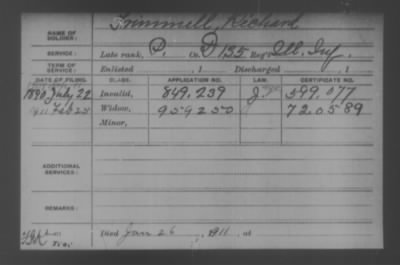 NAME OF SOLDIER: Trimmell, Richard
SERVICE: Late rank, P. Co. D 135 Reg't Ill. Inf.
TERM OF SERVICE: Enlisted , 1 Discharged , 1
DATE OF FILING. CLASS. APPLICATION NO. LAW. CERTIFICATE NO.
1890 July 22 Invalid, 849.239 599.077
1911 Feb 23 Widow, 959250 72.05 89
Minor,
ADDITIONAL SERVICES:
REMARKS:
Died Jan 26, 1911, at